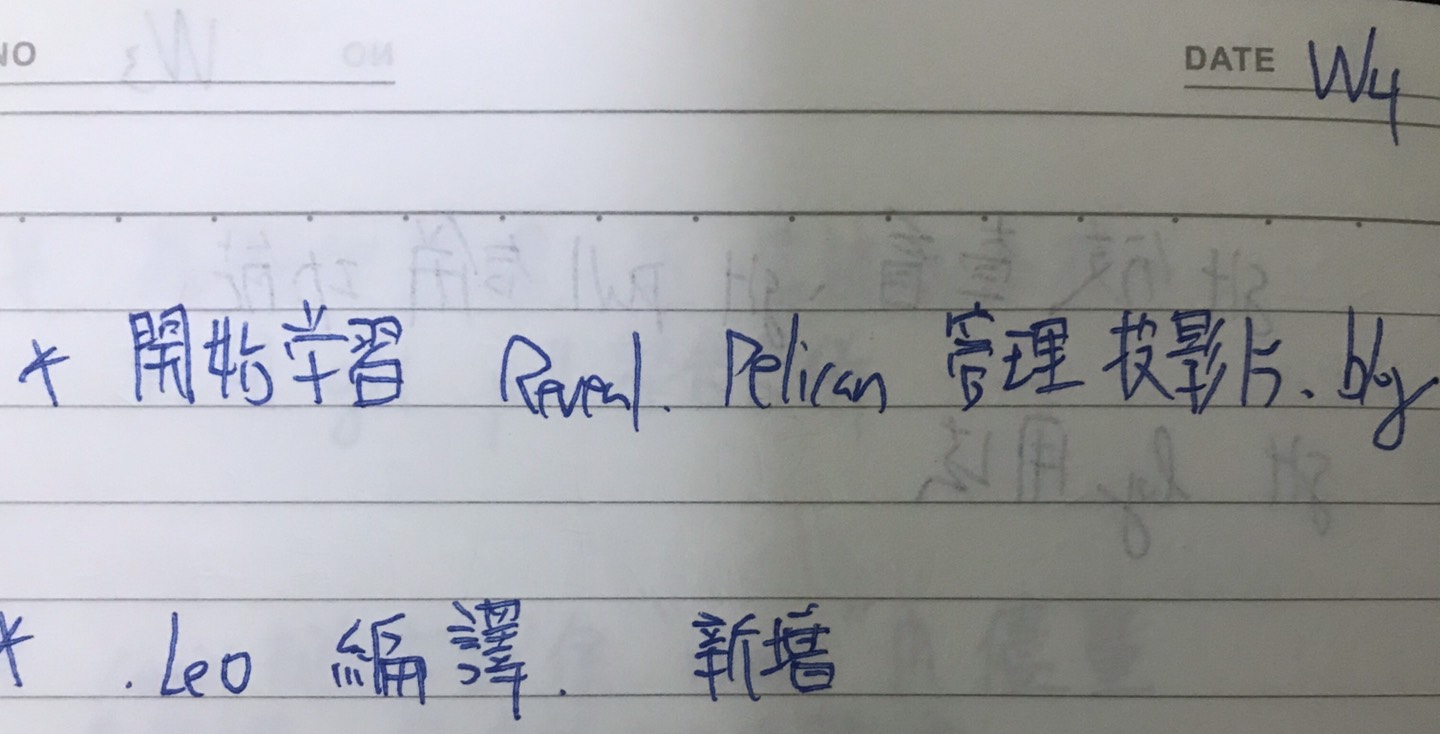 NO
DATE W4
* 開始学習 Reveal. Pelican 管理投影片、blog
* .Leo 編譯. 新增